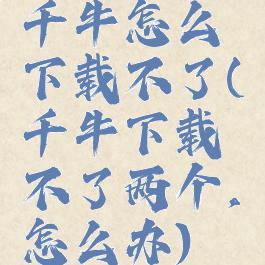 千牛怎么
下载不了(
千牛下载
不了两个,
怎么办)